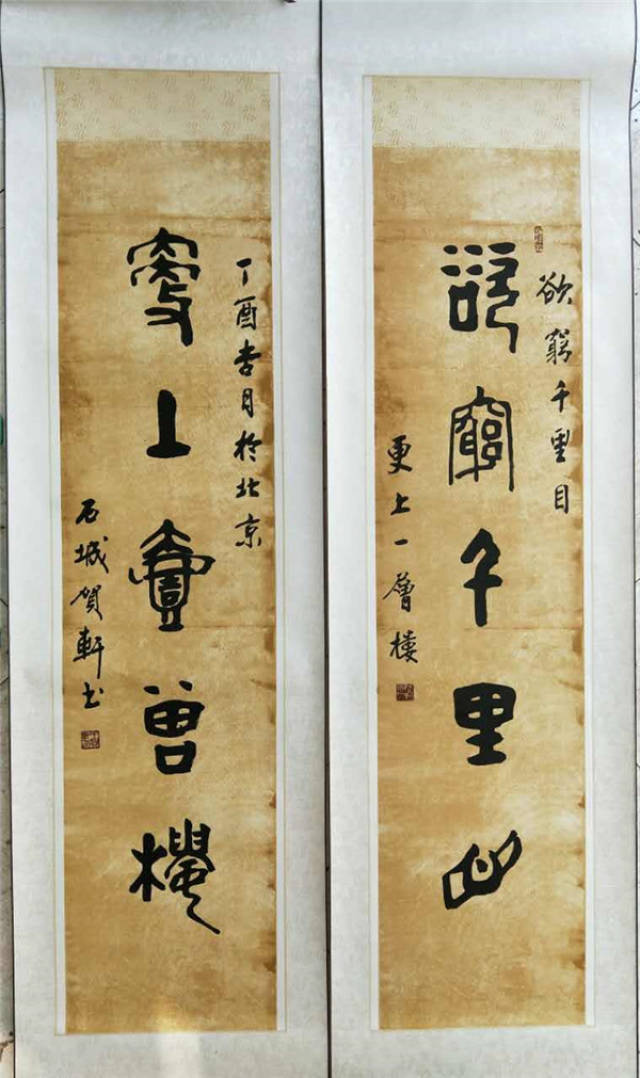 欲窮千里目
欲窮千里目
更上一層樓
丁酉杏月於北京
更上壹曾樓
石城賀軒书